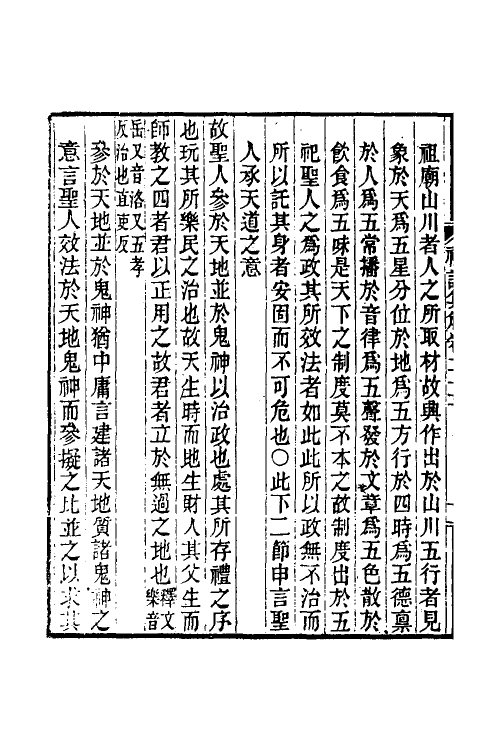 祖廟山川者人之所取材故興作出於山川五行者見
象於天爲五星分位於地爲五方行於四時爲五德稟
於人爲五常播於音律爲五聲發於文章爲五色散於
飲食爲五味是天下之制度莫不本之故制度出於五
祀聖人之爲政其所效法者如此此所以政無不治而
所以託其身者安固而不可危也○此下二節申言聖
人承天道之意
故聖人參於天地並於鬼神以治政也處其所存禮之序
也玩其所樂民之治也故天生時而地生財人其父生而
師教之四者君以正用之故君者立於無過之地也釋文樂音
岳又音洛又五孝
反治也直吏反
參於天地並於鬼神猶中庸言建諸天地質諸鬼神之
意言聖人效法於天地鬼神而參擬之比並之以求其